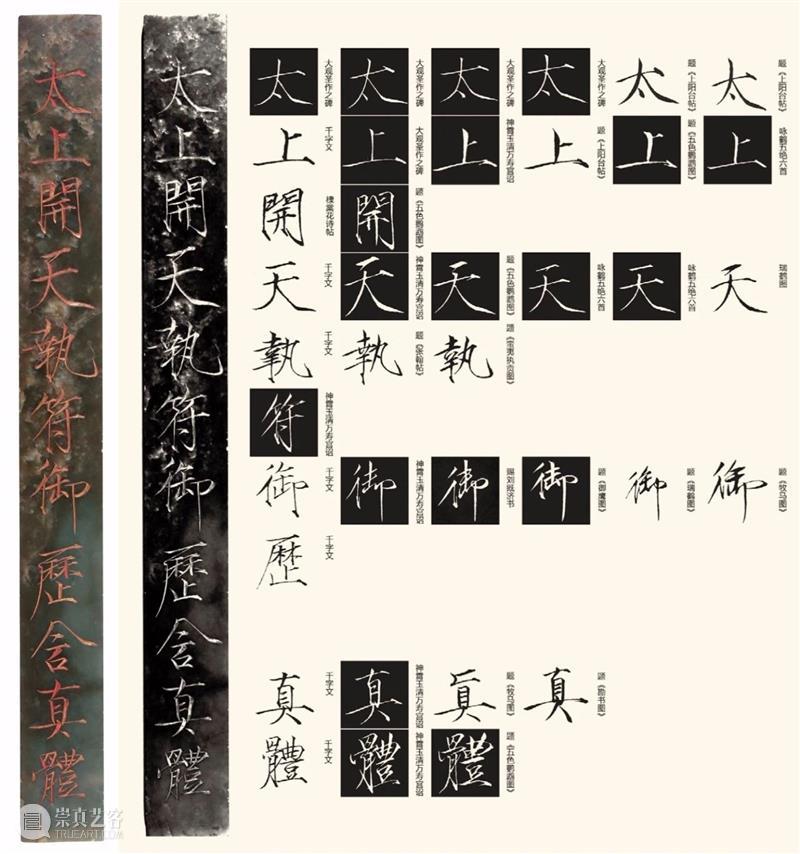 太上開天執符御歷含真體
太上開天執符御歷含真體
太 大观圣作之碑 太 大观圣作之碑 太 大观圣作之碑 太 大观圣作之碑 太 题《上阳台帖》 太 题《上阳台帖》
上 千字文 上 大观圣作之碑 上 神霄玉清万寿宫诏 上 题《上阳台帖》 上 题《五色鹦鹉图》 上 咏鹤五绝六首
開 棣棠花诗帖 開 题《五色鹦鹉图》
天 千字文 天 神霄玉清万寿宫诏 天 题《五色鹦鹉图》 天 咏鹤五绝六首 天 咏鹤五绝六首 天 瑞鹤图
執 千字文 執 题《张翰帖》 執 题《蛮夷执贡图》
符 神霄玉清万寿宫诏
御 千字文 御 神霄玉清万寿宫诏 御 赐刘既济书 御 题《御鹰图》 御 题《瑞鹤图》 御 题《牧马图》
歷 千字文
真 千字文 真 神霄玉清万寿宫诏 真 题《牧马图》 真 题《勘书图》
體 千字文 體 神霄玉清万寿宫诏 體 题《五色鹦鹉图》
崇真艺客
TRUEART.COM